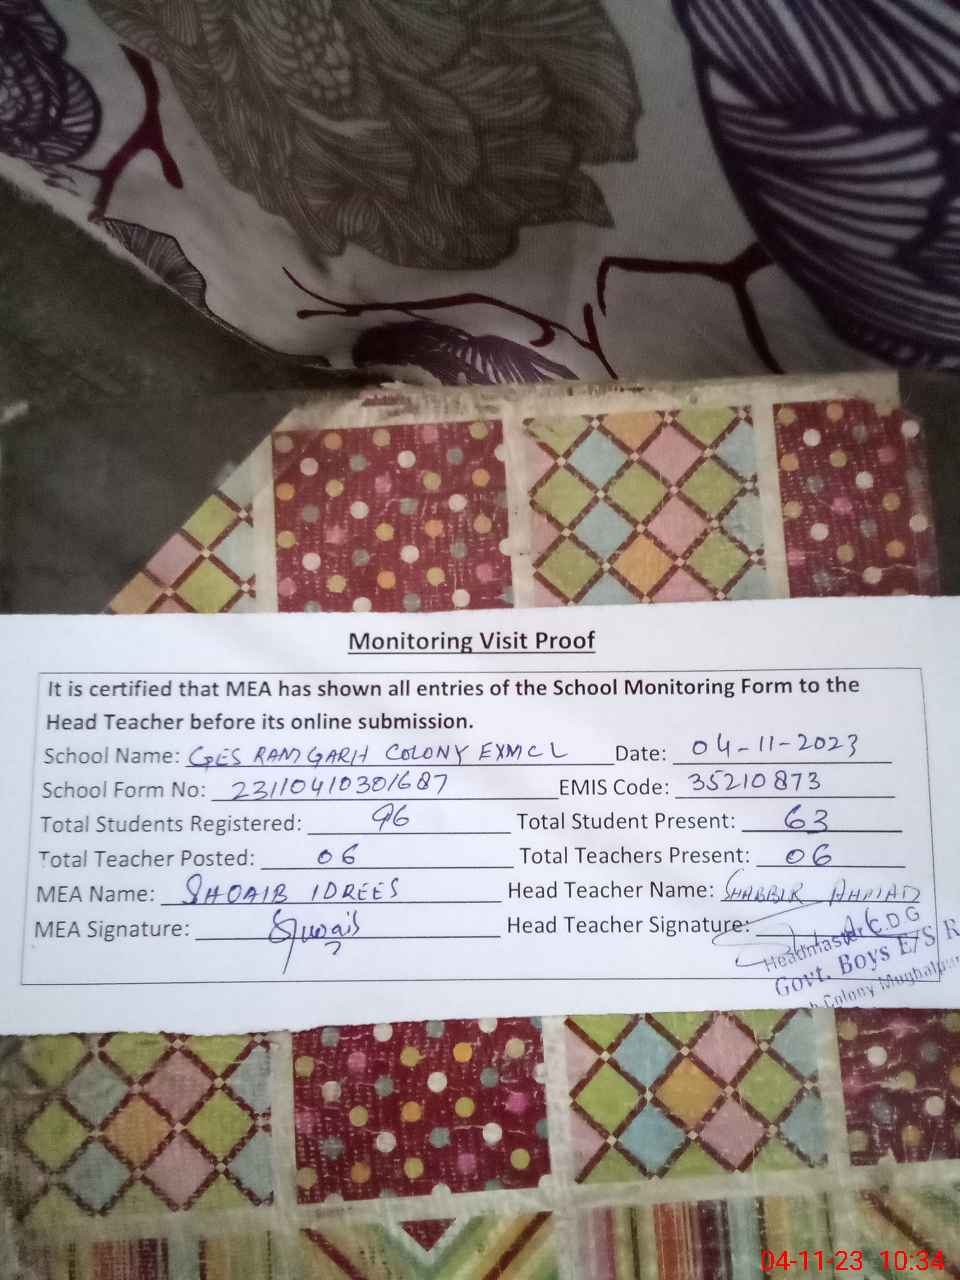 Monitoring Visit Proof
It is certified that MEA has shown all entries of the School Monitoring Form to the
Head Teacher before its online submission.
School Name: GES RAMGARH COLONY EXMCL Date: 04-11-2023
School Form No: 23110410301687 EMIS Code: 35210873
Total Students Registered: 96 Total Student Present: 63
Total Teacher Posted: 06 Total Teachers Present: 06
MEA Name: SHOAIB IDREES Head Teacher Name: SHABBIR AHMAD
MEA Signature: Head Teacher Signature:
Headmaster C.D.G
Govt. Boys E/S R
Colony Mughalpur
04-11-23 10:34